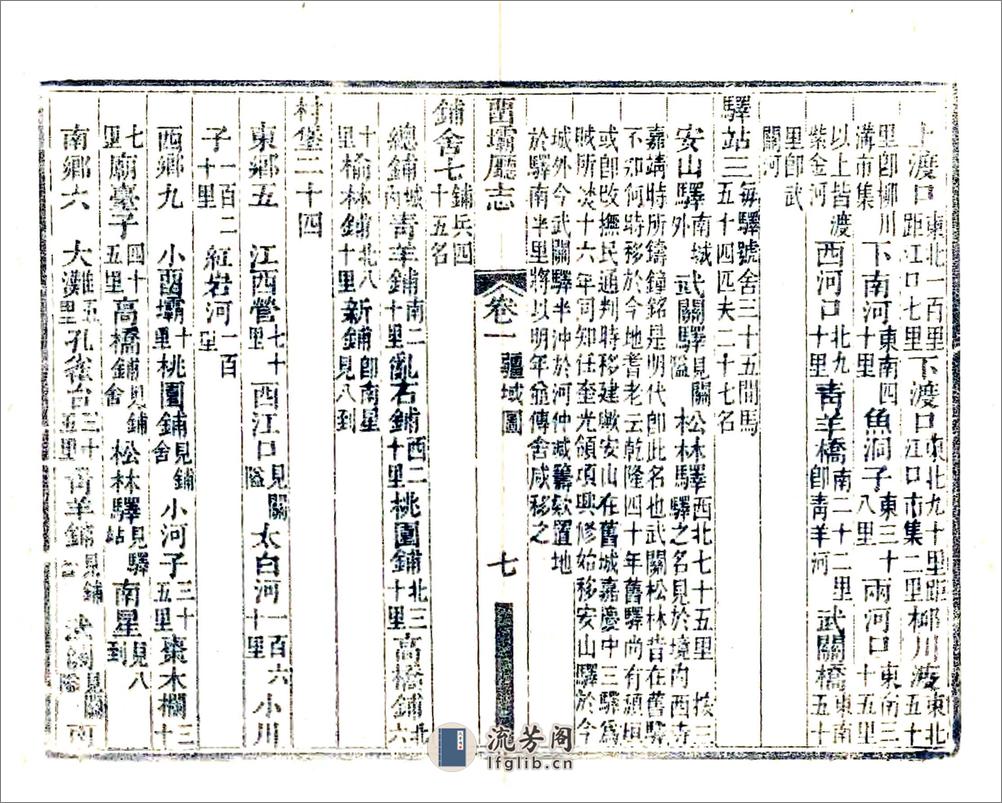 上渡口東北一百里距江口七里下渡口東北九十里距江口市集二里柳川渡東北五十
里即柳川溝市集下南河東南四十里魚洞子東三十八里兩河口東南三十五里
以上皆渡紫金河西河口北九十里青羊橋南二十二里即青羊河武關橋東南五十
里即武關河
驛站三每驛號舍三十五間馬五十四匹夫二十七名
安山驛南城外武關驛見關隘松林驛西北七十五里按三驛之名見於境内西寺
嘉靖時所鑄鐘銘是明代即此名也武關松林昔在舊驛不知何時移於今地耆老云乾隆四十年舊驛尚有頹垣
或即改撫民通判時移建歟安山在舊城嘉慶中三驛爲賊所焚十六年同知任奎光領項興修始移安山驛於今
城外今武關驛半沖於河仲减籌欵置地於驛南半里將以明年並傳舍咸移之
畱壩廳志 卷一 疆域圖 七
鋪舍七鋪兵四十五名
總鋪城内青羊鋪南二十里亂石鋪西二十里桃園鋪北三十里高橋鋪北六
十里榆林鋪北八十里新鋪即南星見八到
村堡二十四
東鄉五 江西營七十里西江口見關隘太白河一百六十里小川
子一百二十里紅岩河一百里
西鄉九 小畱壩十里桃園鋪見鋪舍小河子三十五里棗木欄三十
七里廟臺子四十五里高橋鋪見鋪舍松林驛見驛站南星見八到
南鄉六 大灘五里孔雀台三十五里青羊鋪見鋪 見關隘
流芳阁
lfglib.cn